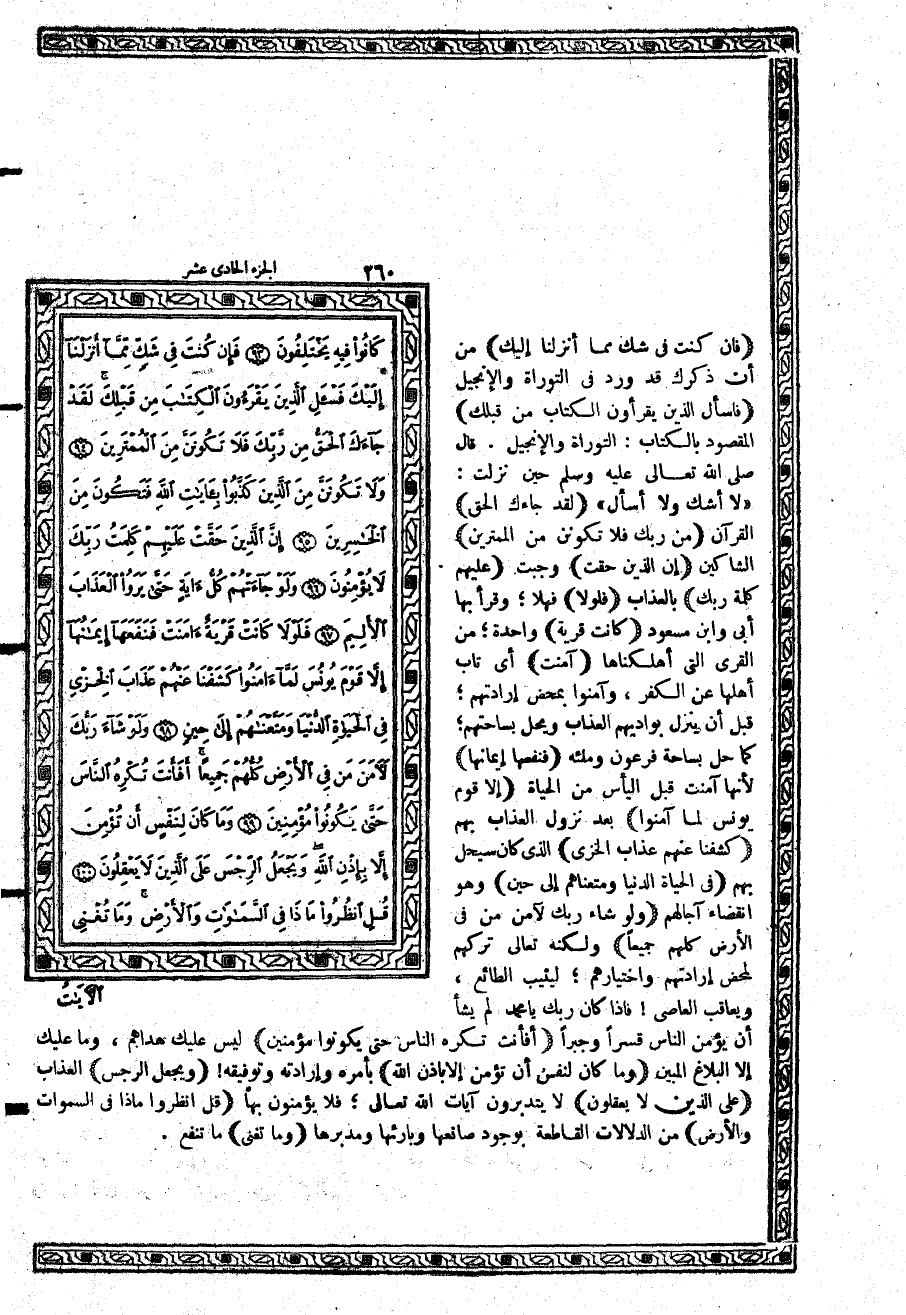 ٢٦٠ الجزء الحادى عشر
كَانُوا۟ فِيهِ يَخْتَلِفُونَ ۝٩٣ فَإِن كُنتَ فِى شَكٍّ مِّمَّآ أَنزَلْنَآ
إِلَيْكَ فَسْـَٔلِ ٱلَّذِينَ يَقْرَءُونَ ٱلْكِتَـٰبَ مِن قَبْلِكَ ۚ لَقَدْ
جَآءَكَ ٱلْحَقُّ مِن رَّبِّكَ فَلَا تَكُونَنَّ مِنَ ٱلْمُمْتَرِينَ ۝٩٤
وَلَا تَكُونَنَّ مِنَ ٱلَّذِينَ كَذَّبُوا۟ بِـَٔايَـٰتِ ٱللَّهِ فَتَكُونَ مِنَ
ٱلْخَـٰسِرِينَ ۝٩٥ إِنَّ ٱلَّذِينَ حَقَّتْ عَلَيْهِمْ كَلِمَتُ رَبِّكَ
لَا يُؤْمِنُونَ ۝٩٦ وَلَوْ جَآءَتْهُمْ كُلُّ ءَايَةٍ حَتَّىٰ يَرَوُا۟ ٱلْعَذَابَ
ٱلْأَلِيمَ ۝٩٧ فَلَوْلَا كَانَتْ قَرْيَةٌ ءَامَنَتْ فَنَفَعَهَآ إِيمَـٰنُهَآ
إِلَّا قَوْمَ يُونُسَ لَمَّآ ءَامَنُوا۟ كَشَفْنَا عَنْهُمْ عَذَابَ ٱلْخِزْىِ
فِى ٱلْحَيَوٰةِ ٱلدُّنْيَا وَمَتَّعْنَـٰهُمْ إِلَىٰ حِينٍ ۝٩٨ وَلَوْ شَآءَ رَبُّكَ
لَـَٔامَنَ مَن فِى ٱلْأَرْضِ كُلُّهُمْ جَمِيعًا ۚ أَفَأَنتَ تُكْرِهُ ٱلنَّاسَ
حَتَّىٰ يَكُونُوا۟ مُؤْمِنِينَ ۝٩٩ وَمَا كَانَ لِنَفْسٍ أَن تُؤْمِنَ
إِلَّا بِإِذْنِ ٱللَّهِ ۚ وَيَجْعَلُ ٱلرِّجْسَ عَلَى ٱلَّذِينَ لَا يَعْقِلُونَ ۝١٠٠
قُلِ ٱنظُرُوا۟ مَاذَا فِى ٱلسَّمَـٰوَٰتِ وَٱلْأَرْضِ ۚ وَمَا تُغْنِى
ٱلْـَٔايَـٰتُ
(فان كنت فى شك مما أنزلنا إليك) من
أن ذكرك قد ورد فى التوراة والإنجيل
(فاسأل الذين يقرأون الكتاب من قبلك)
المقصود بالكتاب : التوراة والإنجيل . قال
صلى الله تعالى عليه وسلم حين نزلت :
«لا أشك ولا أسأل» (لقد جاءك الحق)
القرآن (من ربك فلا تكونن من الممترين)
الشاكين (إن الذين حقت) وجبت (عليهم
كلمة ربك) بالعذاب (فلولا) فهلا ؛ وقرأ بها
أبى وابن مسعود (كانت قرية) واحدة ؛ من
القرى التى أهلكناها (آمنت) أى تاب
أهلها عن الكفر ، وآمنوا بمحض إرادتهم ؛
قبل أن ينزل بواديهم العذاب ويحل بساحتهم؛
كما حل بساحة فرعون وملئه (فنفعها إيمانها)
لأنها آمنت قبل اليأس من الحياة (إلا قوم
يونس لما آمنوا) بعد نزول العذاب بهم
(كشفنا عنهم عذاب الخزى) الذى كان سيحل
بهم (فى الحياة الدنيا ومتعناهم إلى حين) وهو
انقضاء آجالهم (ولو شاء ربك لآمن من فى
الأرض كلهم جميعاً) ولكنه تعالى تركهم
لمحض إرادتهم واختيارهم ؛ ليثيب الطائع ،
ويعاقب العاصى ! فاذا كان ربك يامحمد لم يشأ
أن يؤمن الناس قسراً وجبراً (أفأنت تكره الناس حتى يكونوا مؤمنين) ليس عليك هداهم ، وما عليك
إلا البلاغ المبين (وما كان لنفس أن تؤمن إلاباذن الله) بأمره وإرادته وتوفيقه! (ويجعل الرجس) العذاب
(على الذين لا يعقلون) لا يتدبرون آيات الله تعالى ؛ فلا يؤمنون بها (قل انظروا ماذا فى السموات
والأرض) من الدلالات القاطعة بوجود صانعها وبارئها ومدبرها (وما تغنى) ما تنفع .